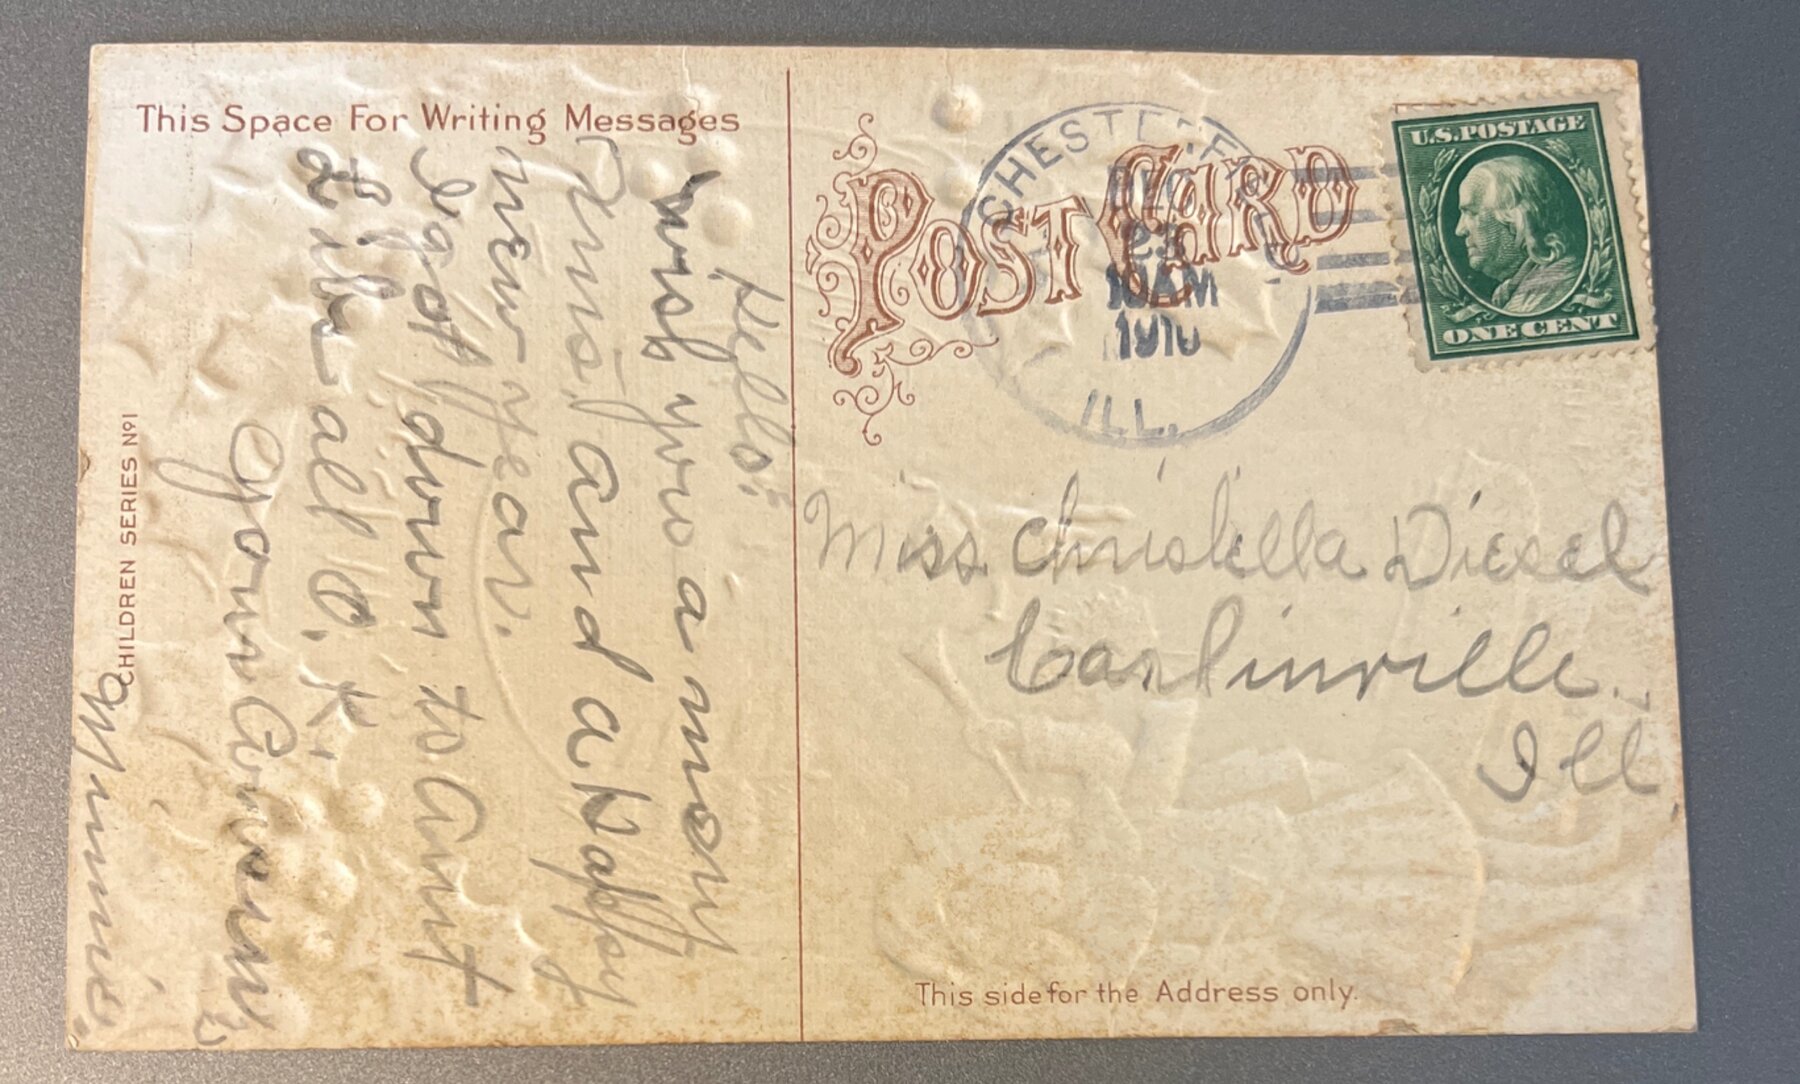 This Space For Writing Messages
Hello:
wish you a mery
Xmas, and a Happy
new year.
I got down to Aunt
Lile all O.K.
Your Cousin
Minnie.
CHILDREN SERIES Nº1
POST CARD
CHESTERFI
DEC
23
10 AM
1910
ILL.
U.S. POSTAGE
ONE CENT
Miss Christella Diesel
Carlinville.
Ill
This side for the Address only.